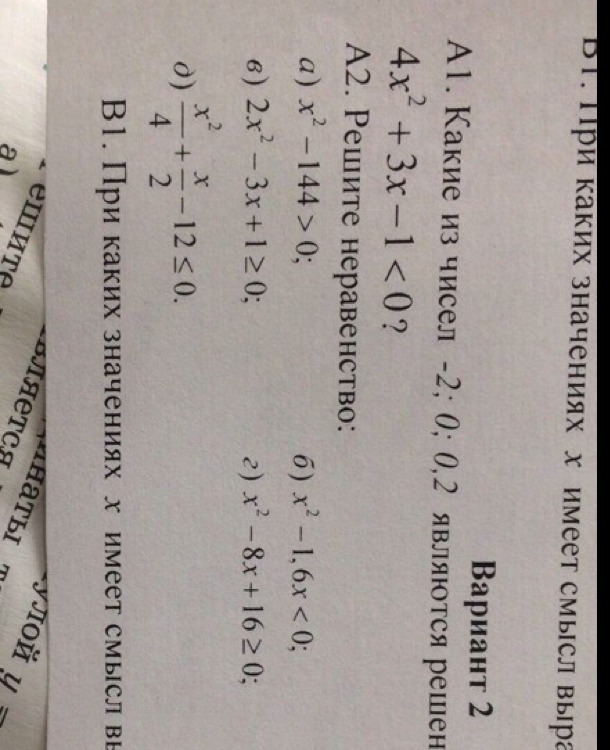 В1. При каких значениях x имеет смысл
Вариант 2
А1. Какие из чисел -2; 0; 0,2 являются решен
4x² + 3x − 1 < 0?
А2. Решите неравенство:
а) x² − 144 > 0; б) x² − 1,6x < 0;
в) 2x² − 3x + 1 ≥ 0; г) x² − 8x + 16 ≥ 0;
д) x²/4 + x/2 − 12 ≤ 0.
В1. При каких значениях x имеет смысл